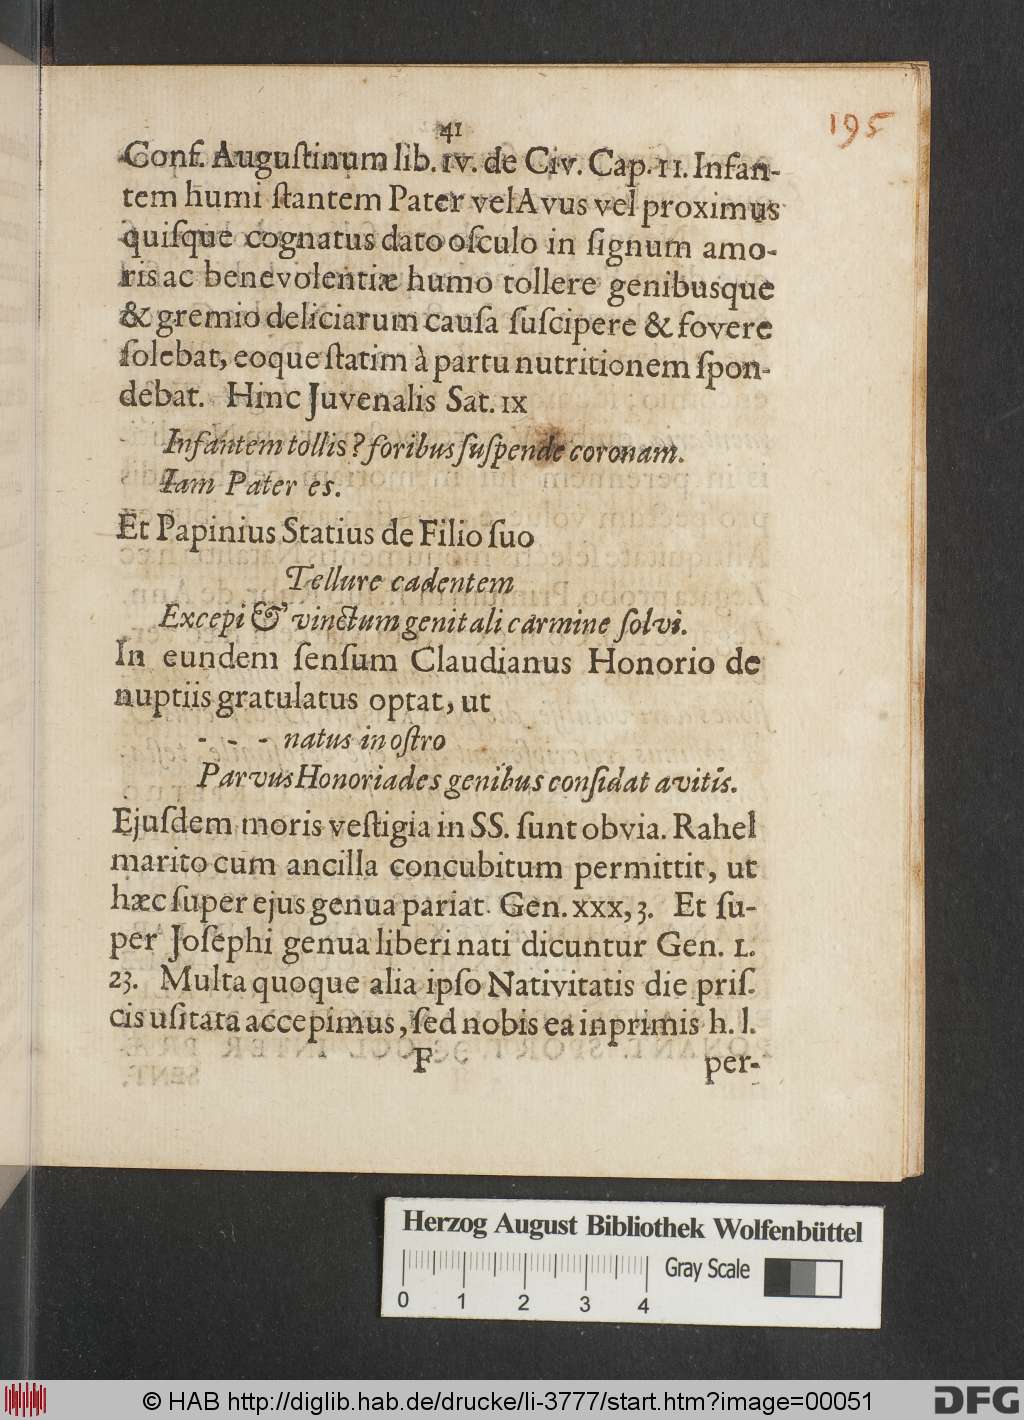 41
195
Conf. Auguſtinum lib. IV. de Civ. Cap. 11. Infan-
tem humi ſtantem Pater vel Avus vel proximus
quiſque cognatus dato oſculo in ſignum amo-
ris ac benevolentiæ humo tollere genibusque
& gremio deliciarum cauſa ſuſcipere & fovere
ſolebat, eoque ſtatim à partu nutritionem ſpon-
debat. Hinc Juvenalis Sat. IX
Infantem tollis? foribus ſuſpende coronam.
Iam Pater es.
Et Papinius Statius de Filio ſuo
Tellure cadentem
Excepi & vinctum genitali carmine ſolvi.
In eundem ſenſum Claudianus Honorio de
nuptiis gratulatus optat, ut
- - - natus in oſtro
Parvus Honoriades genibus conſidat avitis.
Ejuſdem moris veſtigia in SS. ſunt obvia. Rahel
marito cum ancilla concubitum permittit, ut
hæc ſuper ejus genua pariat. Gen. XXX, 3. Et ſu-
per Joſephi genua liberi nati dicuntur Gen. L.
23. Multa quoque alia ipſo Nativitatis die priſ-
cis uſitata accepimus, ſed nobis ea inprimis h. l.
F per-
Herzog August Bibliothek Wolfenbüttel
Gray Scale
0 1 2 3 4
© HAB http://diglib.hab.de/drucke/li-3777/start.htm?image=00051
DFG